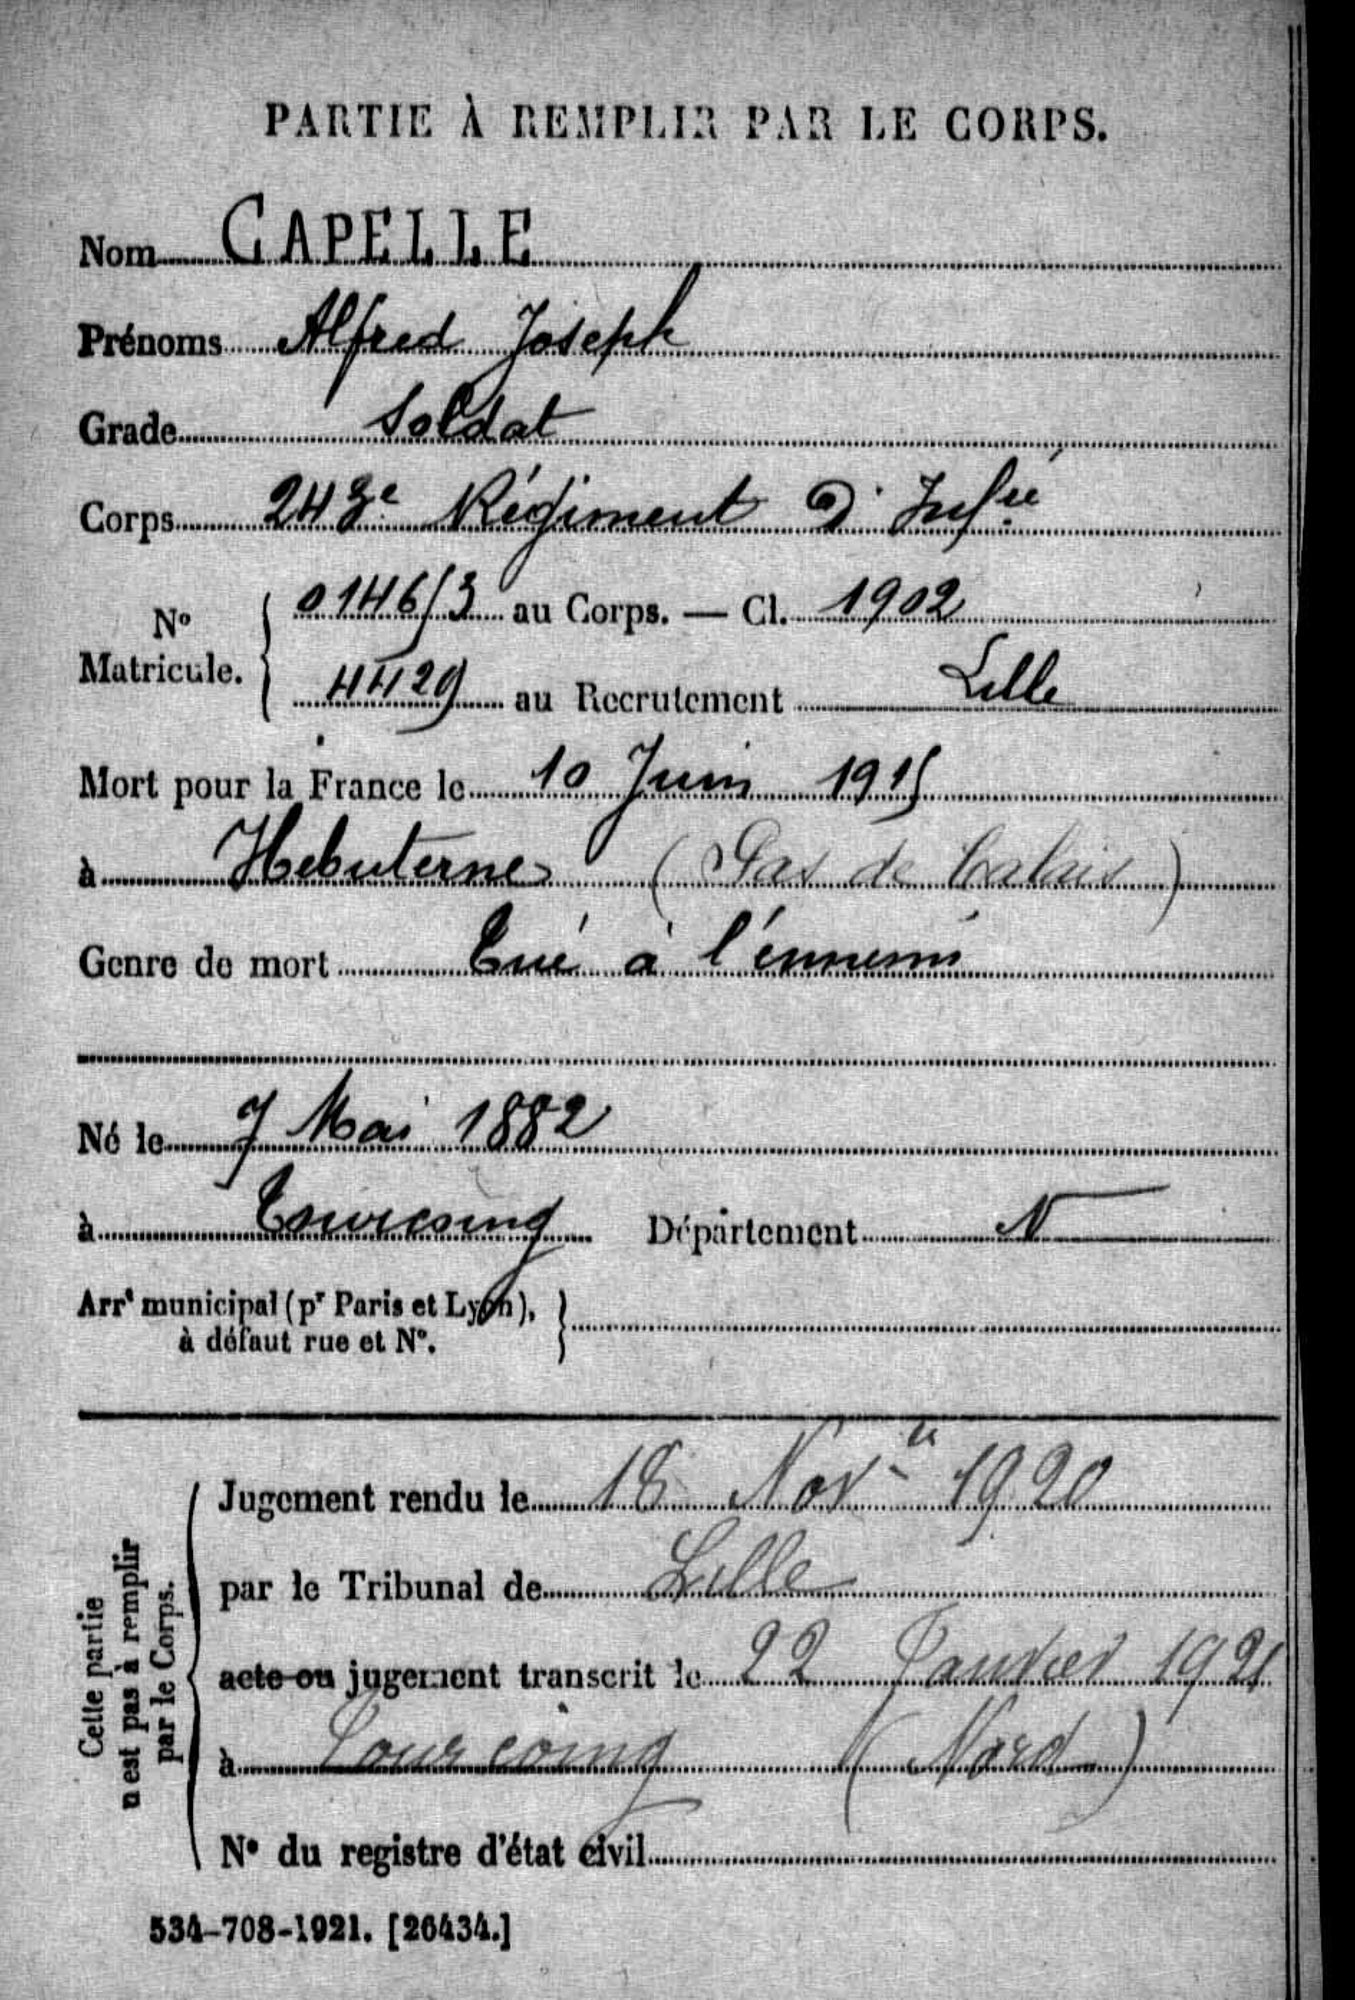 PARTIE À REMPLIR PAR LE CORPS.
Nom CAPELLE
Prénoms Alfred Joseph
Grade Soldat
Corps 243e Régiment D' Infie
No Matricule. { 0146/3 au Corps. — Cl. 1902
4429 au Recrutement Lille
Mort pour la France le 10 Juin 1915
à Hebuterne (Pas de Calais)
Genre de mort Tué à l'énnemi
Né le 7 Mai 1882
à Tourcoing Département N
Arrt municipal (pr Paris et Lyon), }
à défaut rue et No.
Cette partie
n'est pas à remplir
par le Corps.
Jugement rendu le 18 Novre 1920
par le Tribunal de Lille
acte ou jugement transcrit le 22 Janvier 1921
à Tourcoing (Nord)
No du registre d'état civil
534-708-1921. [26434.]